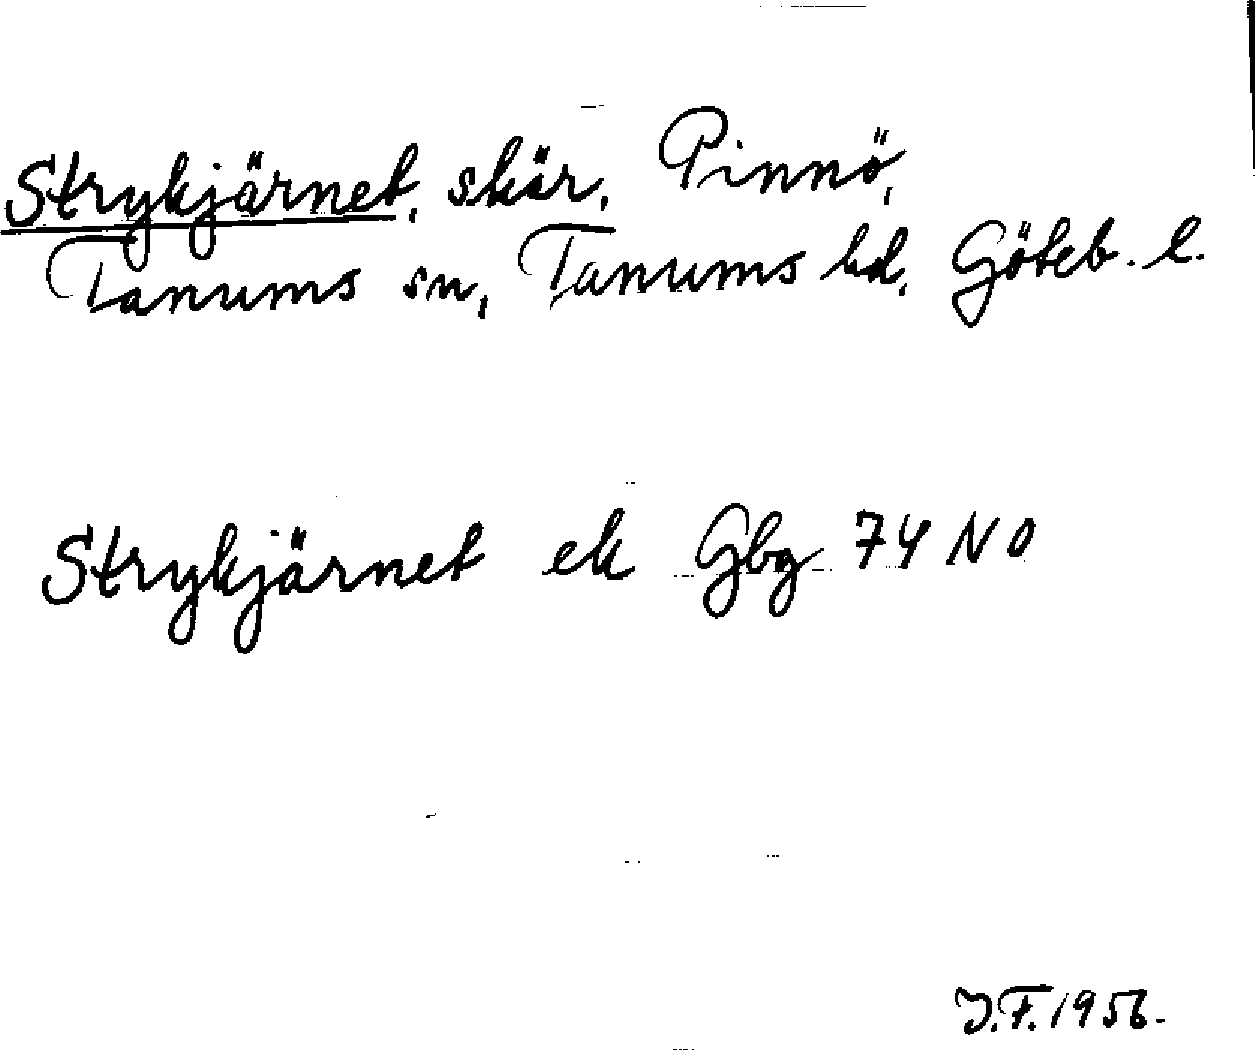 Strykjärnet, skär, Pinnö,
Tanums sn, Tanums hd, Göteb. l.
Strykjärnet ek Gbg 74 NO
J.F. 1956.